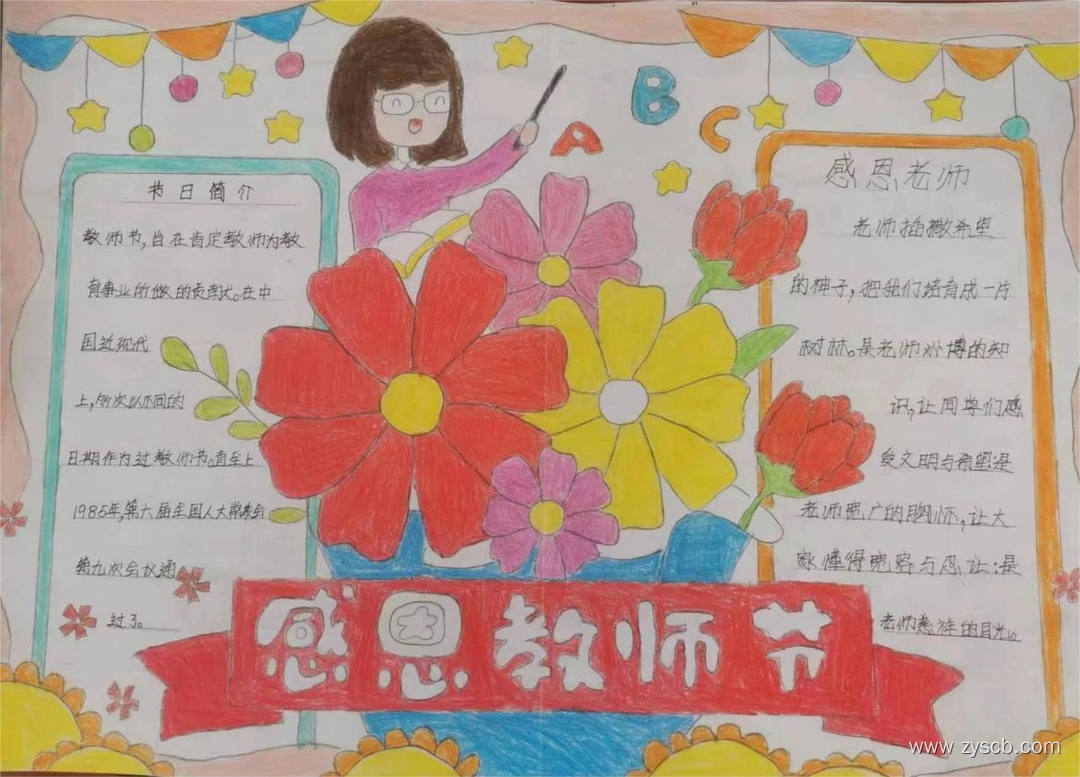 A
B
C
节日简介
教师节,旨在肯定教师为教
育事业所做的贡献。在中
国近现代
上,所次以不同的
日期作为过教师节。直至上
1985年,第六届全国人大常委会
第九次会议通
过了。
感恩老师
老师播撒希望
的种子,把我们培育成一片
树林。是老师渊博的知
识,让同学们感
受文明与希望是
老师宽广的胸怀,让大
家懂得宽容与忍让;是
老师慈祥的目光。
感恩教师节
www.zyscb.com